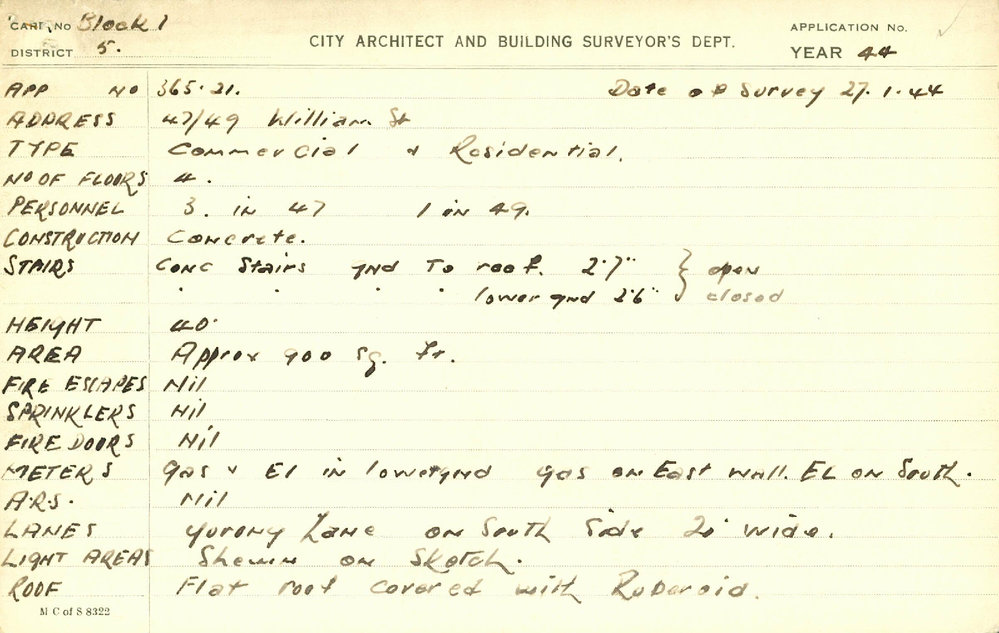 CARD NO Block 1 APPLICATION NO.
DISTRICT 5. CITY ARCHITECT AND BUILDING SURVEYOR'S DEPT. YEAR 44
APP NO 365.21. Date of Survey 27.1.44
ADDRESS 47/49 William St
TYPE Commercial & Residential.
NO OF FLOORS 4.
PERSONNEL 3. in 47 1 in 49.
CONSTRUCTION Concrete.
STAIRS Conc Stairs gnd To roof. 2'7" } open
" " " " lower gnd 2'6" } closed
HEIGHT 40'
AREA Approx 900 sq. ft.
FIRE ESCAPES Nil
SPRINKLERS Nil
FIRE DOORS Nil
METERS Gas & El in lower gnd gas on East wall. EL on South.
A.R.S. Nil
LANES Yurong Lane on South Side 20' wide.
LIGHT AREAS Shewn on Sketch.
ROOF Flat roof covered with Ruberoid.
M C of S 8322